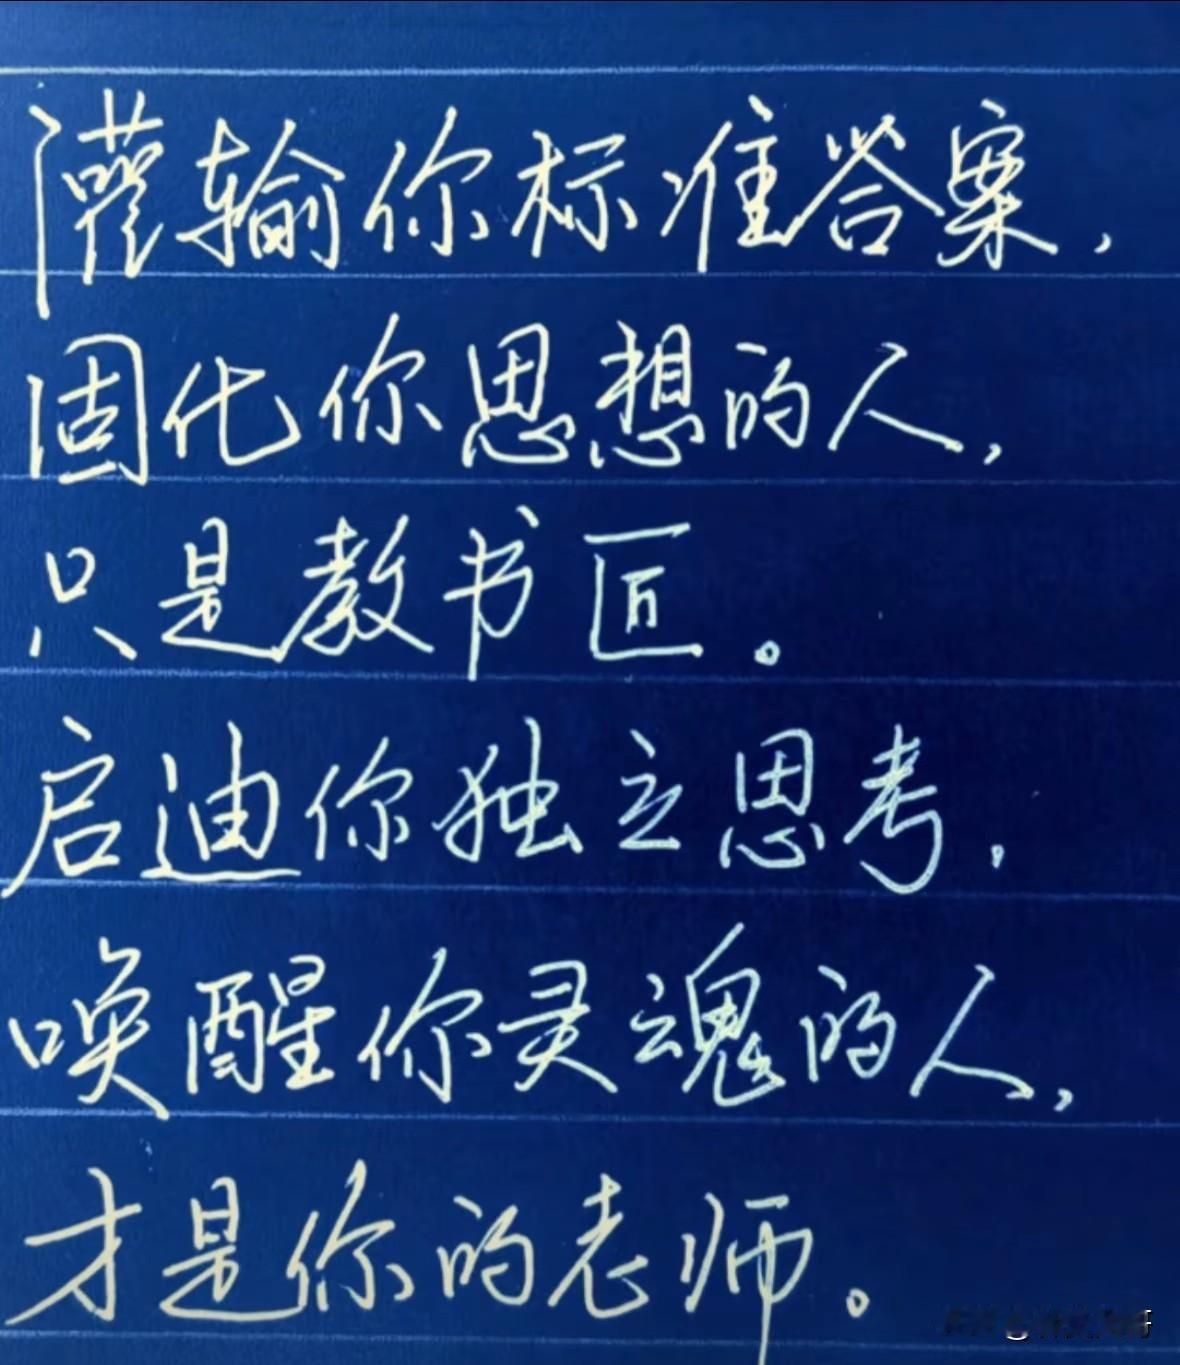 灌输你标准答案，
固化你思想的人，
只是教书匠。
启迪你独立思考，
唤醒你灵魂的人，
才是你的老师。